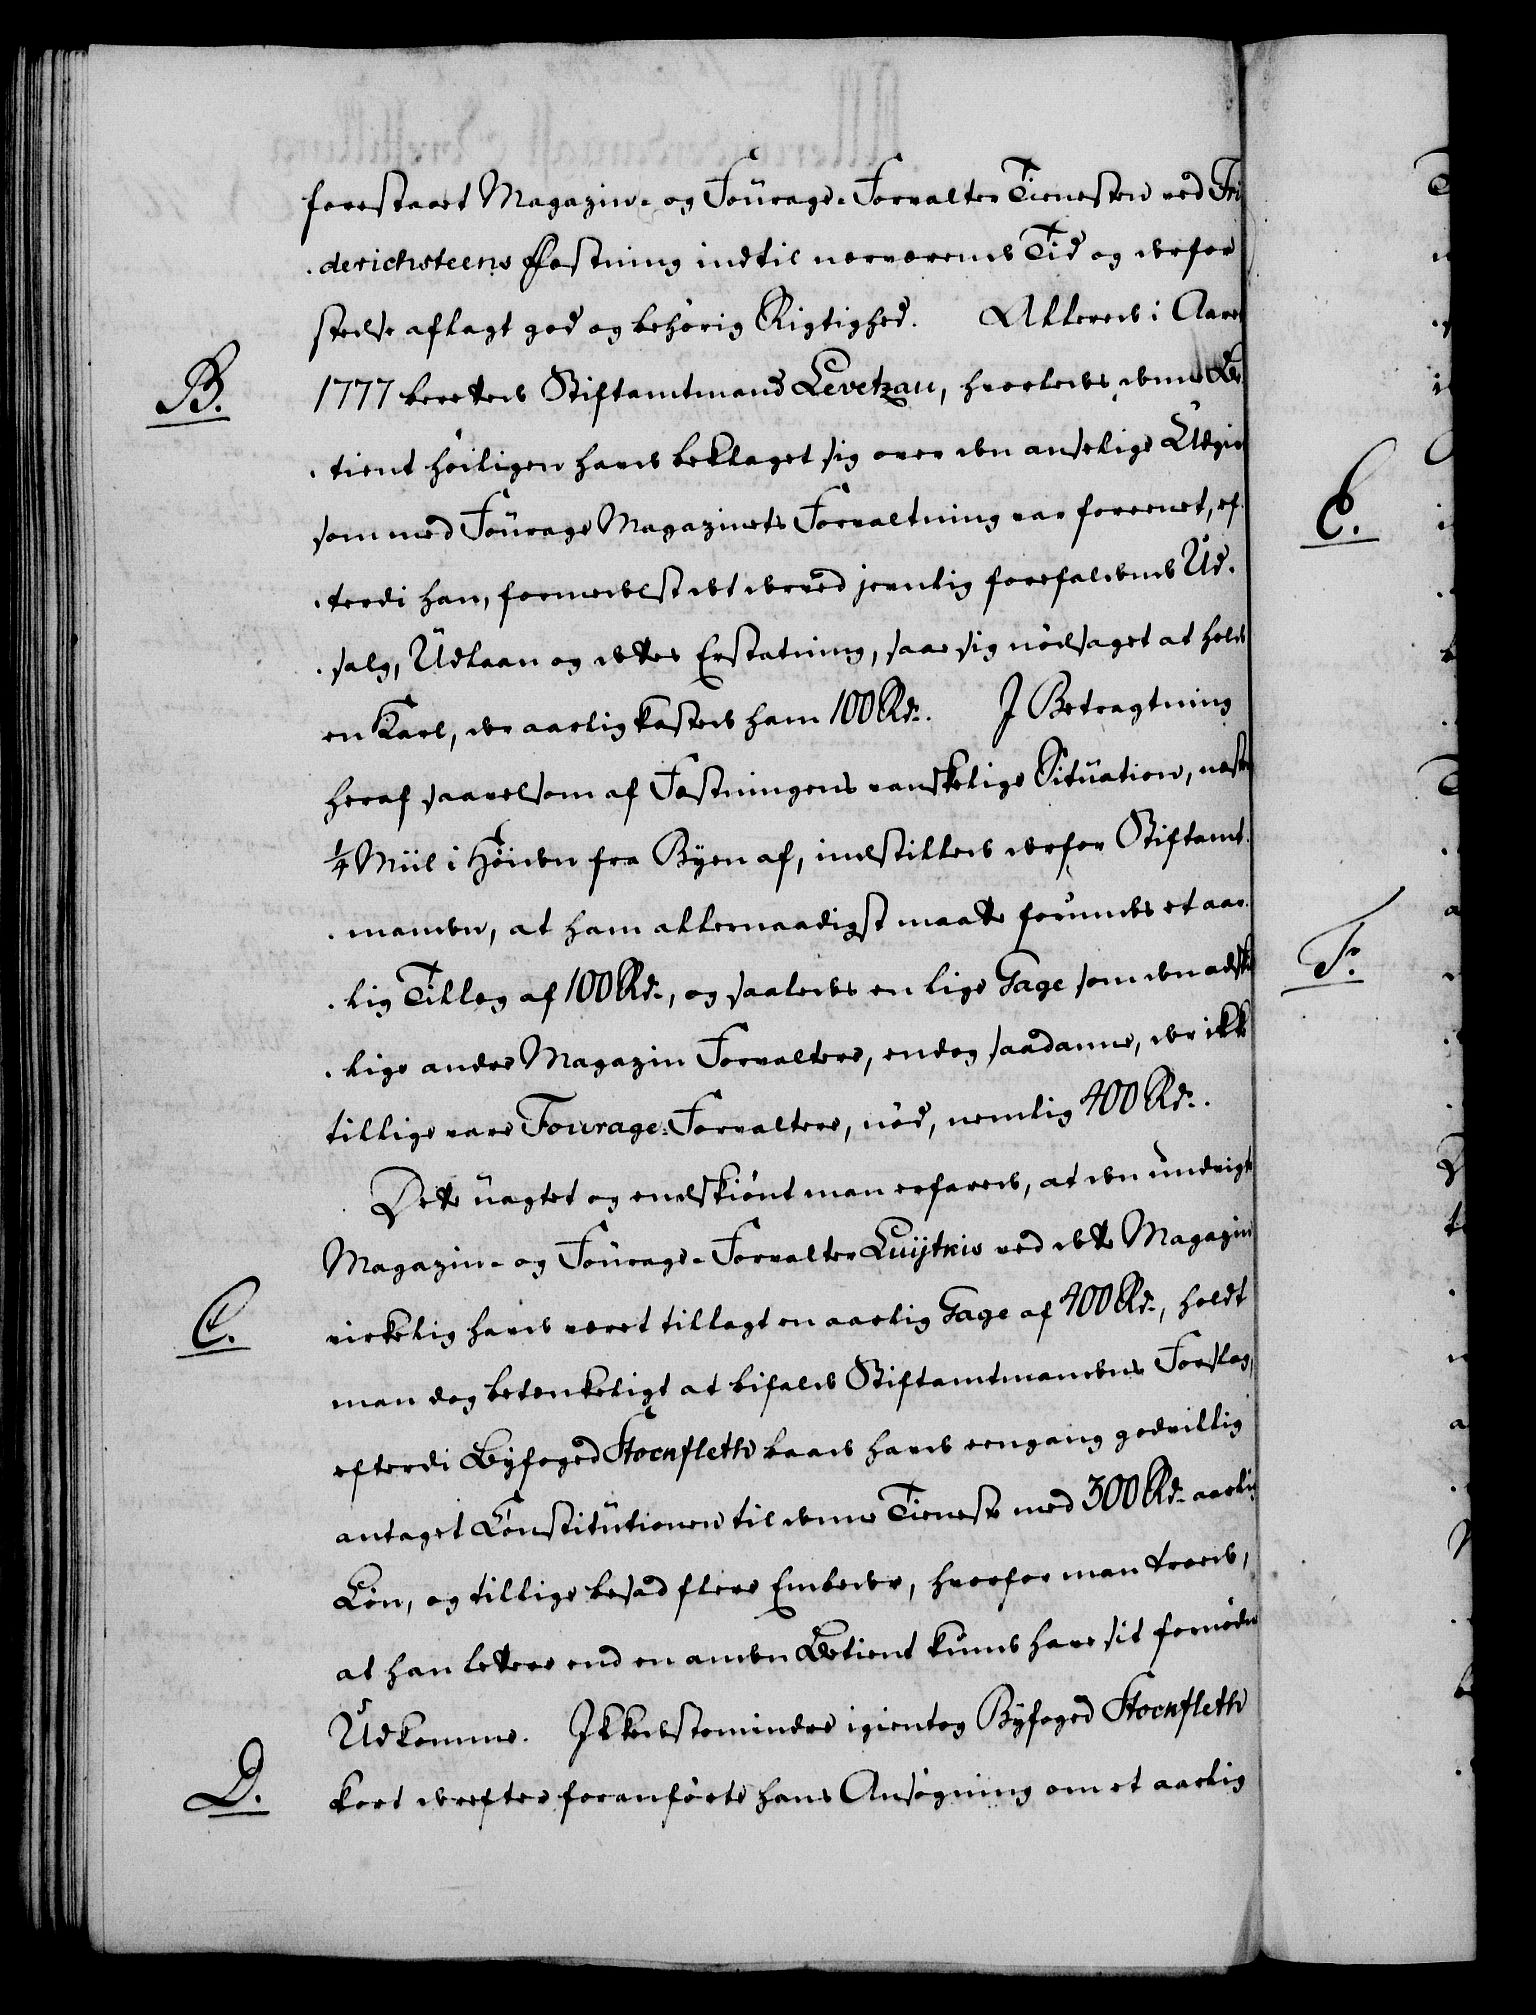 forestaaet Magazin- og Fourage-Forvalter Tienesten ved Fri
derichsteens Fæstning indtil nærværende Tid og derfor
stedse aflagt god og behörig Rigtighed. Allerede i Aaret
B.
1777 berettede Stiftamtmand Levetzau, hvorledes denne Be-
tient höiligen havde beklaget sig over den anselige Udgift
som med Fourage Magazinets Forvaltning var foreenet, ef-
terdi han, formedelst det derved jevnlig forefaldende Ud-
salg, Udlaan og dettes Erstatning, saae sig nödsaget at holde
en Karl, der aarlig kostede ham 100 Rd. I Betragtning
heraf saavelsom af Fæstningens vanskelige Situation, næsten
1/4 Miil i Höiden fra Byen af, indstillede derfor Stiftamt-
manden, at ham allernaadigst maatte forundes et aar-
lig Tillæg af 100 Rd., og saaledes en lige Gage som den adskil
lige andre Magazin Forvaltere, endog saadanne, der ikke
tillige vare Fourage-Forvaltere, nöd, nemlig 400 Rd.
Dette uagtet og endskiönt man erfarede, at den
Magazin- og Fourage-Forvalter ved dette Magazin
C.
virkelig havde været tillagt en aarlig Gage af 400 Rd., holdt
man dog betænkeligt at bifalde Stiftamtmandens Forslag,
efterdi Byfoged Stockfleth baade havde eengang godvillig
antaget Constitutionen til denne Tieneste med 300 Rd. aarlig
Lön, og tillige besad flere Embeder, hvorfor man troede,
at han lettere end en anden Betient kunde have sit fornödne
Udkomme. Ikkedestomindre igientog Byfoged Stockfleth
D.
kort derefter foranförte hans Ansögning om et aarlig
E.
F.